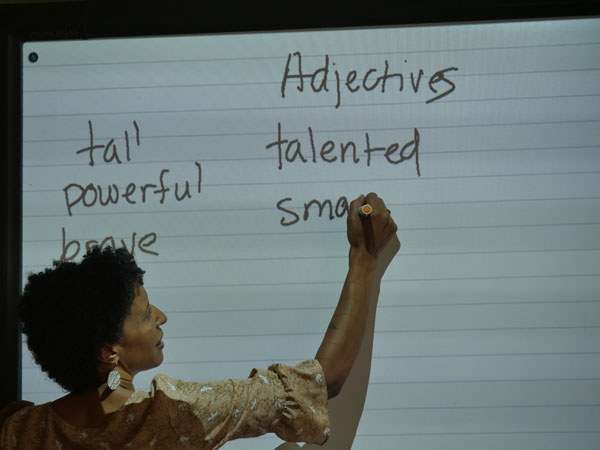 Adjectives
tall talented
powerful sma
brave